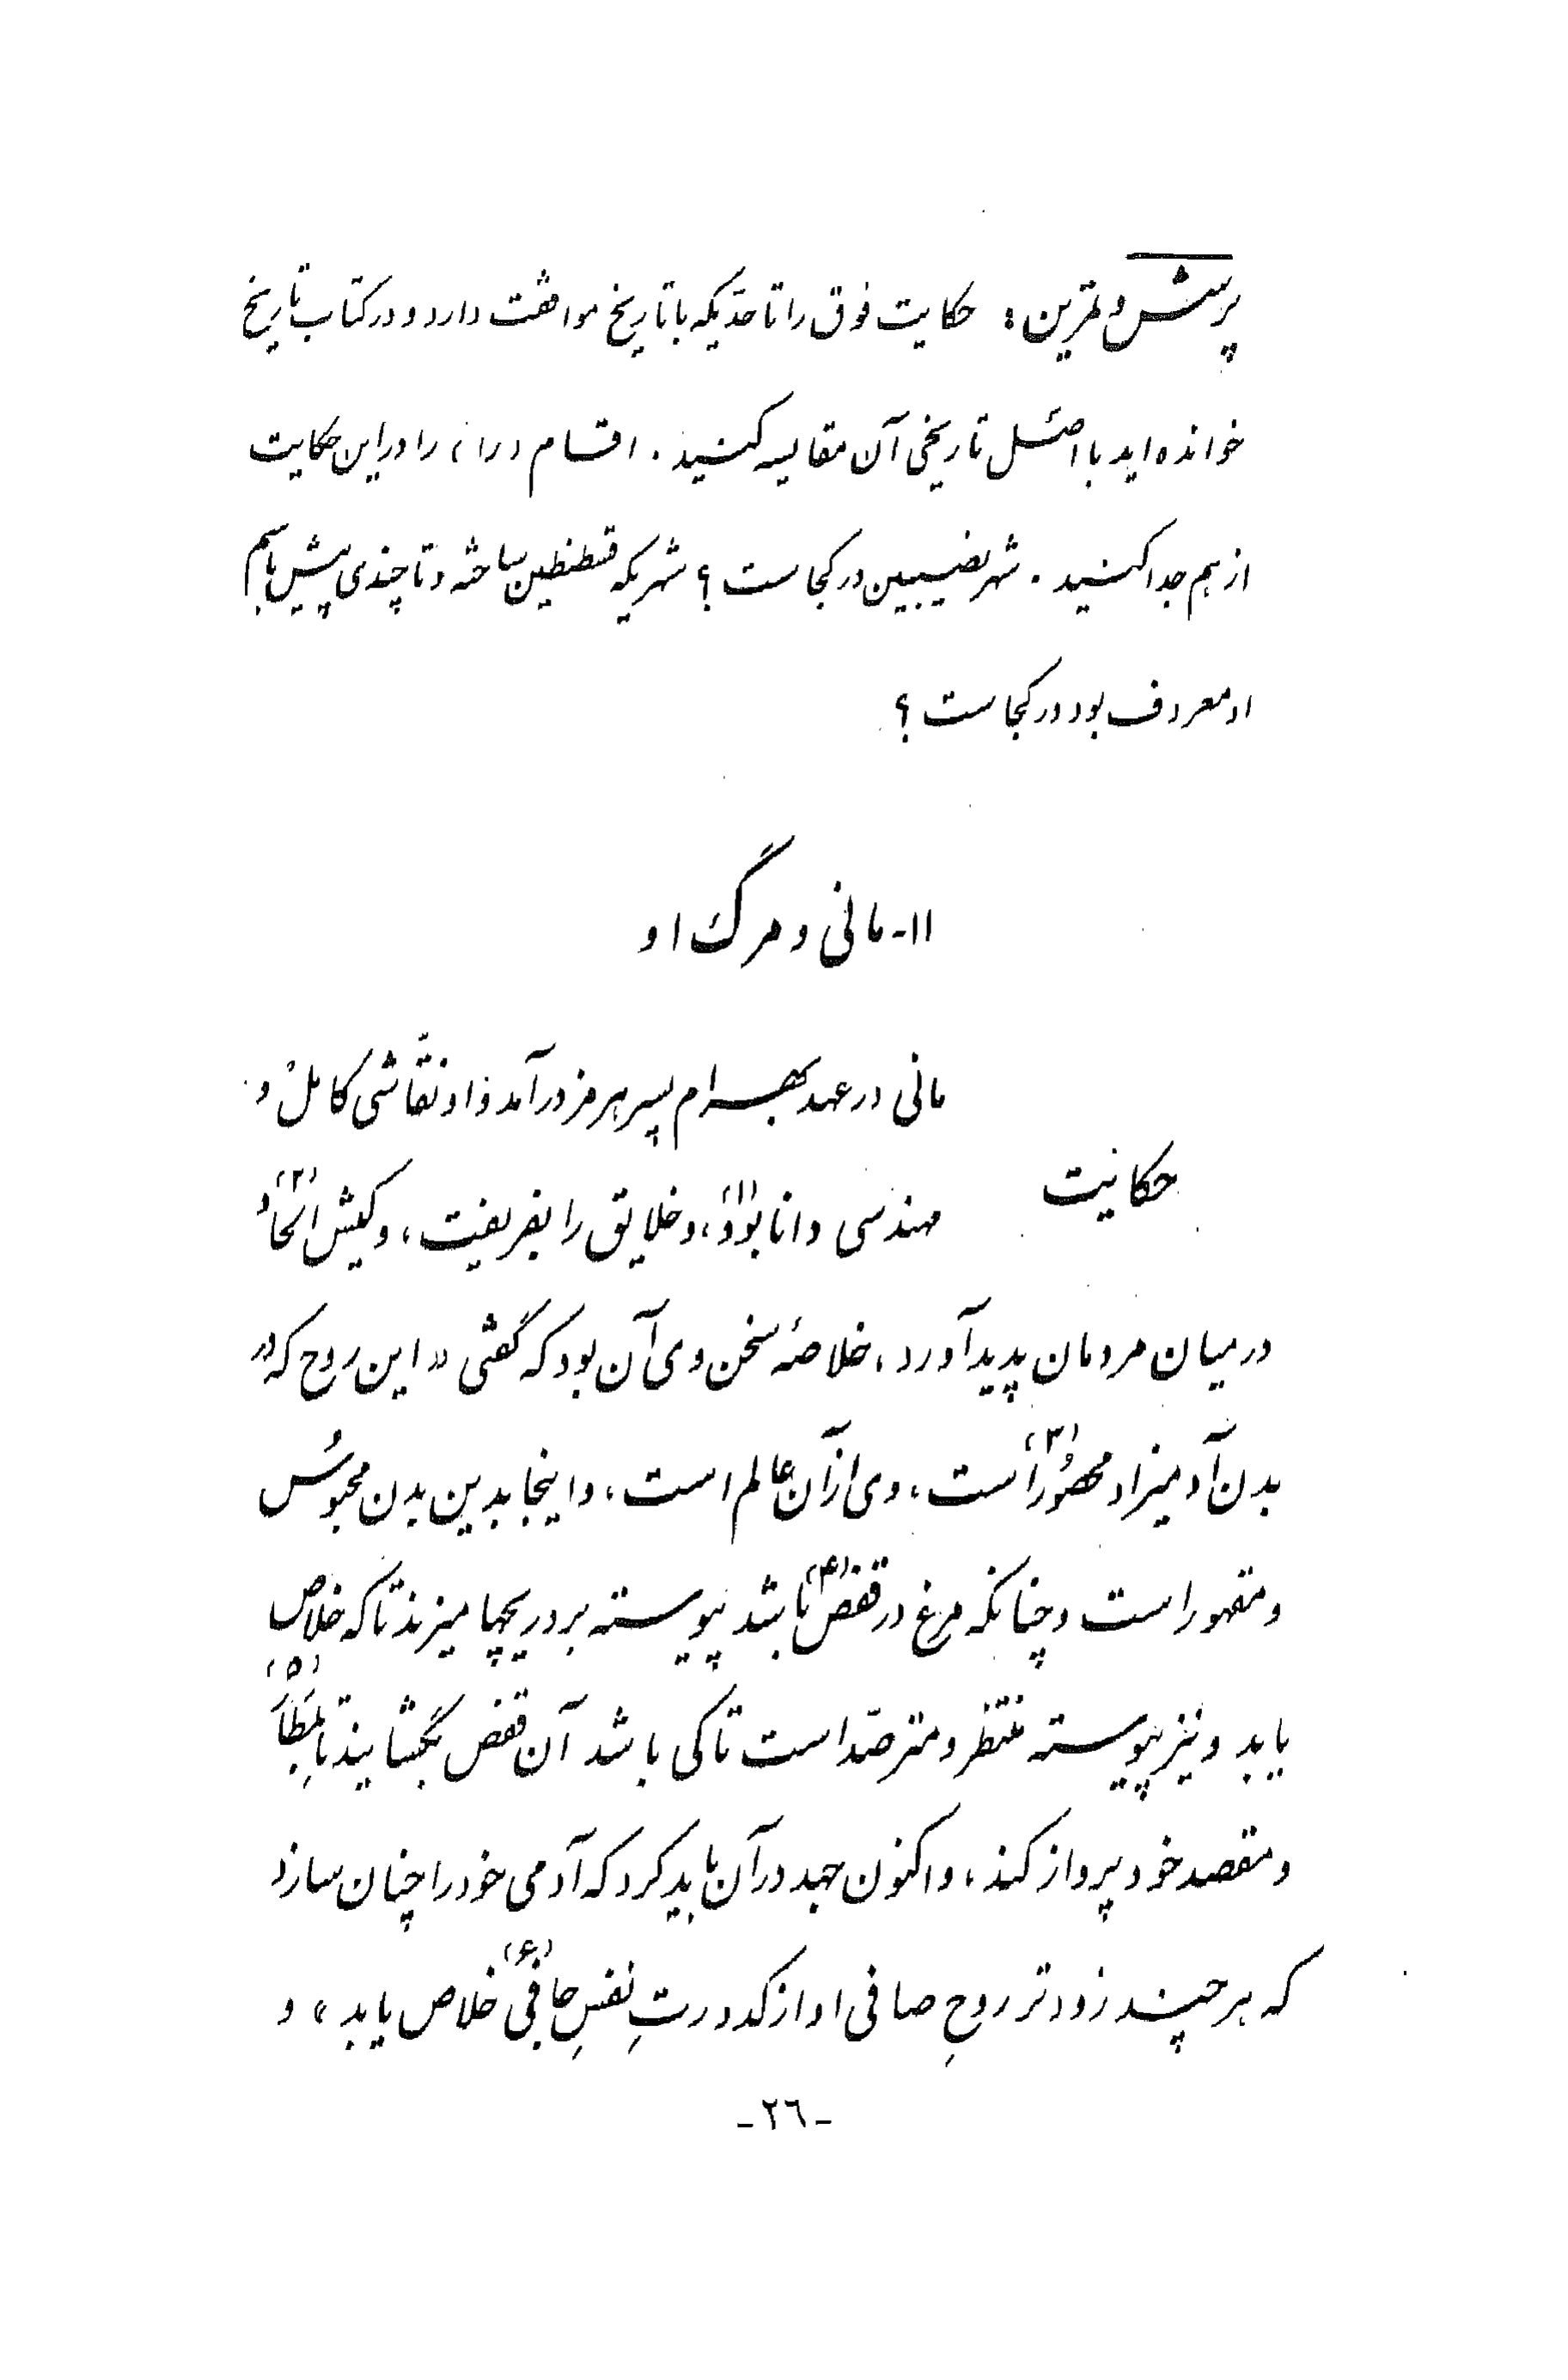 پرسش و تمرین : حکایت فوق را تا حدّیکه با تاریخ موافقت دارد و در کتاب تاریخ
خوانده‌اید با اصل تاریخی آن مقایسه کنید . اقسام (را) را در این حکایت
از هم جدا کنید . شهر نصیبین در کجاست ؟ شهریکه قسطنطین ساخته و تا چندی پیش باسم
او معروف بود در کجاست ؟
۱۱- مانی و مرگ او
مانی در عهد بهرام پسر هرمز در آمد و او نقّاشی کامل و
حکایت
مهندسی دانا بود(۱)، و خلایق را بفریفت ، و کیش الحاد(۲)
در میان مردمان پدید آورد ، خلاصهٔ سخن وی آن بود که گفتی «این روح که در
بدن آدمیزاد محصور(۳) است ، وی از آن عالم است ، و اینجا بدین بدن محبوس
و مقهور است و چنانکه مرغ در قفص(۴) باشد پیوسته بر دریچها میزند تا که خلاص
یابد و نیز پیوسته منتظر و مترصّد است تا کی باشد آن قفص بگشایند تا بِمَطار(۵)
و مقصد خود پرواز کند ، و اکنون جهد در آن باید کرد که آدمی خود را چنان سازد
که هر چند زودتر روحِ صافی او از کدورتِ نفسِ جافی(۶) خلاص یابد» و
- ۲٦ -